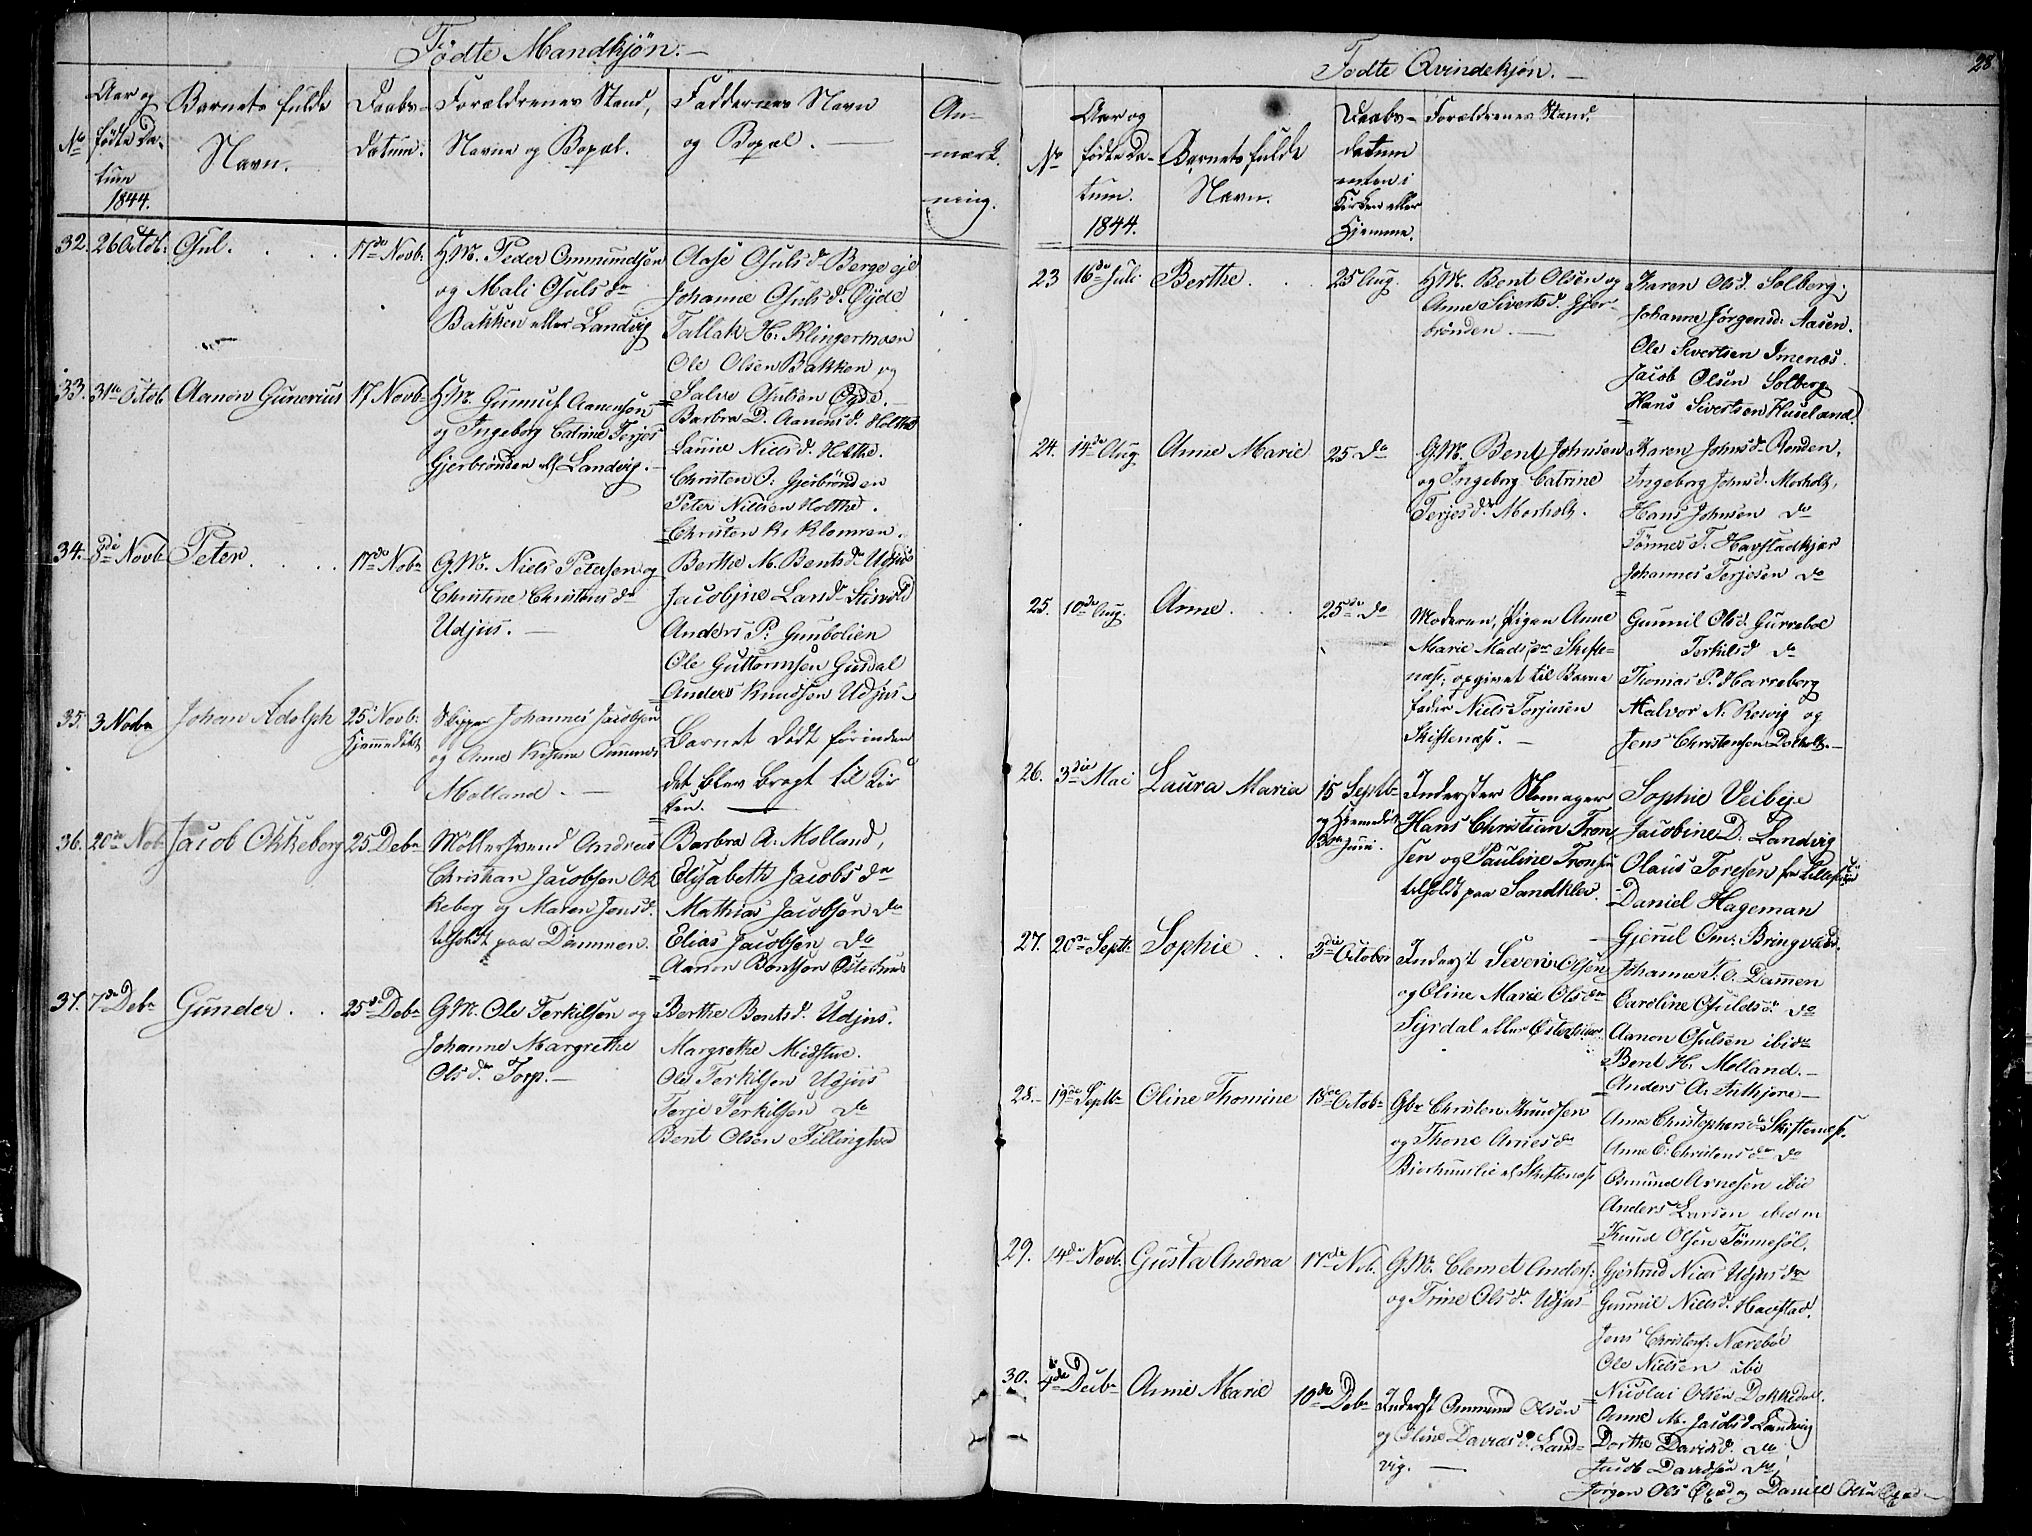 Fødte Mandkjøn.
No
Aar og
fødte Da-
tum
1844.
Barnets fulde
Navn.
Daabs-
datum.
Forældrenes Stand,
Navne og Bopæl.
Faddernes Navn
og Bopæl.
An-
mærk-
ning.
32. 26 Octob: Osul. 17de Novb:
G.M. Peder Ommundsen
og Mali Osulsdr
Bakken eller Landvig
Aase Osulsd. Bergeeje
Johanne Osulsd. Øyde
Tallak H. Klingermoen
Ole Olsen Bakken og
Salve Osulsen Øyde.
33. 31te Octob. Aanon Gunerius 17 Novb-
G.M. Gunnuf Aanensen
og Ingeborg Catrine Terjes
Gjerbrønden af Landvig.
Barbra D. Aanonsd. Holthe
Nielsd. Holthe.
Christen P. Gjerbrønden
Peter Nielsen Holthe.
Christen K. Klomren.
34. 8di Novb- Peter 17de Nobr
G.M. Niels Petersen og
Christine Christensdr
Udjus.
Berthe M. Bentsdr Udjus
Jacobjne Land
Anders P. Gunbolien
Ole Guttormsen Gusdal
Anders Knudsen Udjus
35. 3 Nobr Johan Adolph 25 Novb:
Hjemmedøbt
Skipper Johannes Jacobsen
og Anne
Molland.
Barnet døde førinden
det blev bragt til Kir
ken.
36. 20de Nob. Jacob Okkeberg 25 Debr
Møllersvend Andreas
Christian Jacobsen Ok
keberg og Maren Jensd.
tilholdt paa Dømmen.
Barbra A. Molland,
Elisabeth Jacobsdr
Mathias Jacobsen do
Elias Jacobsen do
Aanon Bentsen Østerhus
37. 7de Debr Gunder. 25de Debr
G.M. Ole Terkilsen og
Johanne Margrethe
Olsdr. Torp.
Berthe Bentsd. Udjus.
Margrethe Midstue.
Ole Terkilsen Udjus
Terje Terkilsen do
Bent Olsen Fillingsved
Fødte Qvindekjøn.
28
No
Aar og
fødte Da-
tum.
1844.
Barnets fulde
Navn.
Daabs-
datum
enten i
Kirken eller
Hjemme.
Forældrenes Stand.
23 16de Juli Berthe. 25 Aug.
G.M. Bent Olsen og
Anne Sivertsd. Gjer-
brønden.
Karen Olsd. Solberg.
Johanne Jørgensd. Aasen.
Ole Sivertsen Imenæs.
Jacob Olsen Solberg
Hans Sivertsen Huseland.
24. 14de Aug Anne Marie 25 do
G.M. Bent Johnsen
og Ingeborg Catrine
Terjesdr. Morholt.
Karen Johnsdr Ronden,
Ingeborg Johnsd. Morholt,
Hans Johnsen do
Tønnes T. Havstadkjær
Johannes Terjesen do
25. 10de Aug. Anne. 25de do
Moderen, Pigen Anne
Marie Madsdr Skifte-
næs; opgivet til Barne
fader Niels Torjusen
Skiftenæs.
Gunnil Olsd. Gurreboe
Terkilsd do
Thomas P. Harreberg
Halvor N. Resvig og
Jens Christensen Dolholt.
26. 3die Mai Laura Maria 15 Septb-
og Hjemmedøbt
Juni.
Inderster Skomager
Hans Christian Tron
sen og Pauline Trons
tilholdt paa Sandkleiv.
Sophie Veibeje
Jacobine D. Landvig
Olaus Toresen fra Lillesand
Daniel Hageman
Gjerul Om: Bringsværd.
27. 20de Septb Sophie 3die October
Inderst Severin Olsen
og Oline Marie Olsdr
Syrdal eller Østerhus
Johanne T. O. Dammen
Caroline Osuldsdr do
Aanon Osulsen ibidm
Bent H. Molland.
Anders A.
28. 19de Septbr Oline Thomine 15de Octobr
Gbr Christen Knudsen
og Thone Arnesdr
Bierhuuslie af Skiftenæs
Anne Christophersdr Skiftenæs.
Anne E. Christensdr do
Osmund Arnesen ibid
Anders Larsen ibidm
Knud Olsen Tønnesøl.
29. 14de Novb. Gusta Andrea 17de Nob.
G.M. Clemet Anders:
og Trine Olsdr Udjus
Gjertrud Niels Udjusdr
Gunnil Nielsd. Havstad.
Jens Christens: Nærebøe
Ole Nielsen ibi
Nicolai Olsen Dokkedal.
30. 4de Debr Anne Marie 10de Debr
Inderst Ommund Olsen
og Oline Davidsd. Land-
vig.
Anne M. Jacobsd Landvig
Dorthe Davidsd. do
Jacob Davidsen do
Jørgen Ols og Daniel Olsen